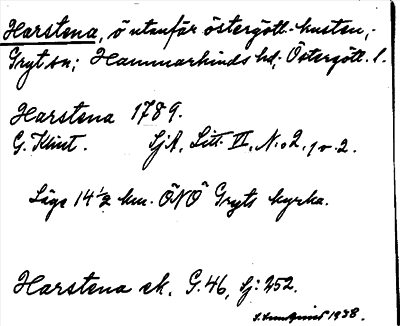 Harstena, ö utanför östergötl. kusten,
Gryt sn; Hammarkinds hd; Östergötl. l.
Harstena 1789.
G. Klint. SjK, Litt. II, No 2, 1 o. 2.
Läge 14 1/2 km. ÖNÖ Gryts kyrka.
Harstena ek. G. 46, Sj: 252.
1938.